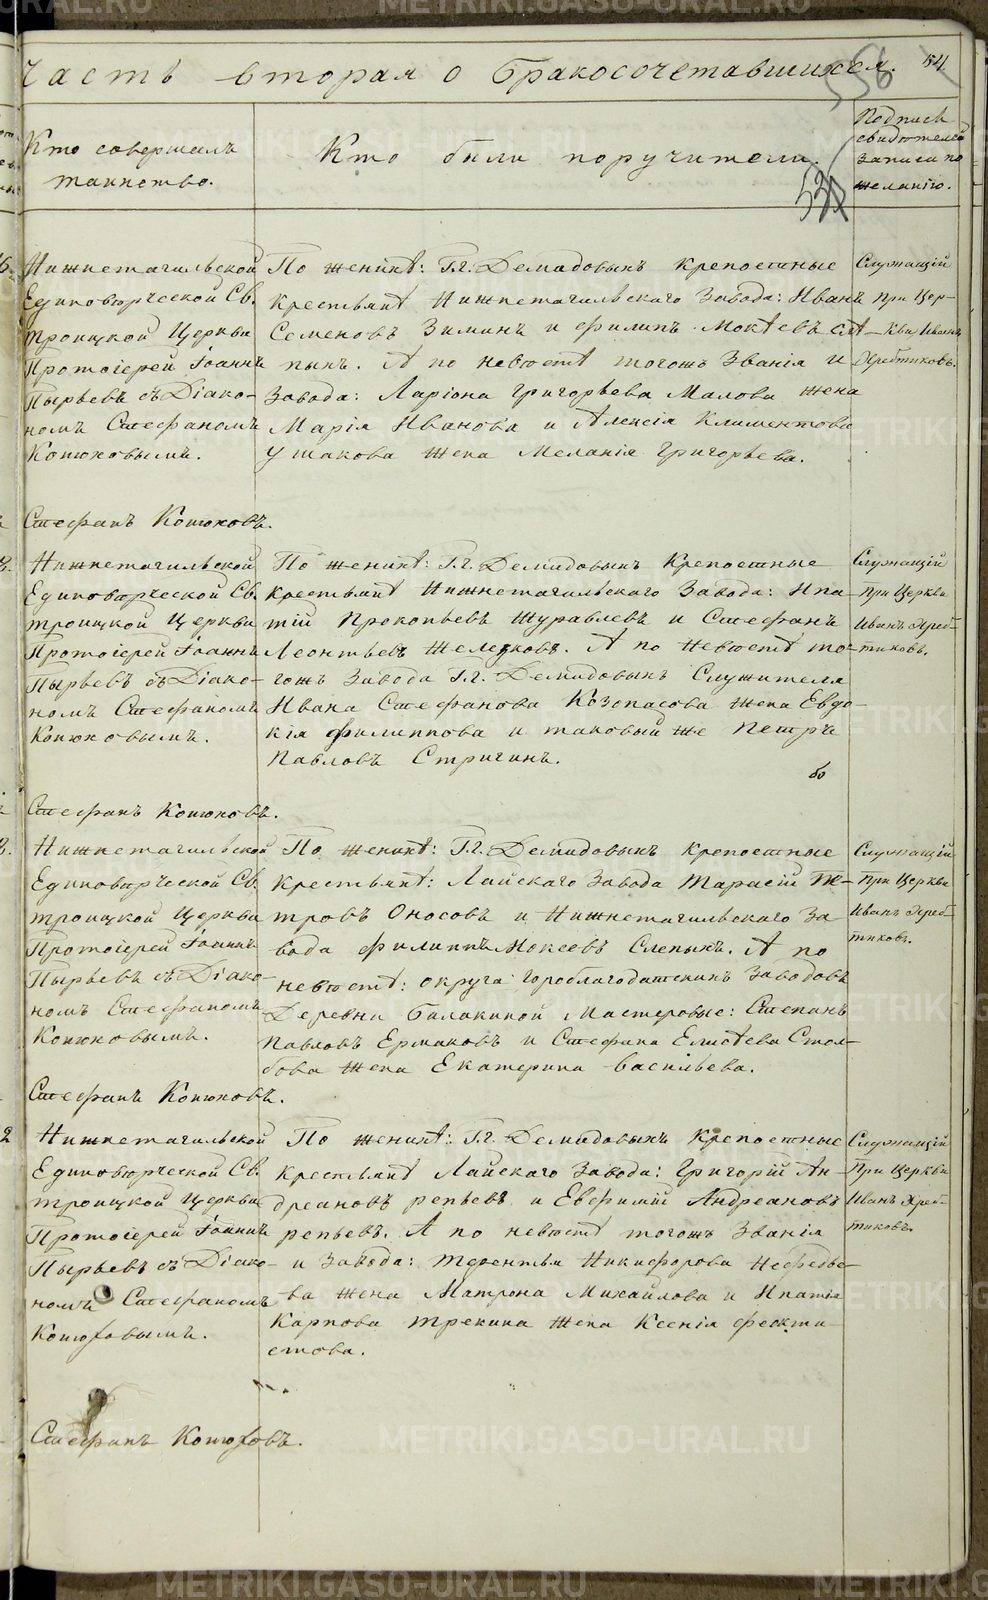 METRIKI.GASO-URAL.RU
Часть вторая о бракосочетавшихся.
54
Кто совершалъ
таинство.
Кто были поручители.
Подписи
свидетелей
записи по
желанію.
Нижнетагильской
Единоверческой Св.
троицкой Церкви
Протоіерей Іоаннъ
Пырьевъ съ Діако-
номъ Стефаномъ
Конюховымъ.
По женихѣ: Г.г. Демидовыхъ крепостные
крестьянѣ Нижнетагильскаго Завода: Иванъ
Семеновъ Зиминъ и Филипъ Мокѣевъ Слѣ-
пыхъ. А по невѣстѣ тогожъ Званія и
Завода: Ларіона Григорьева Малова жена
Марія Иванова и Алексія Климентова
Ушакова жена Меланія Григорьева.
Служащій
При Цер-
кви Иванъ
Хребтиковъ.
Стефанъ Конюховъ.
Нижнетагильской
Единоверческой Св.
троицкой Церкви
Протоіерей Іоаннъ
Пырьевъ съ Діако-
номъ Стефаномъ
Конюховымъ.
По женихѣ: Г.г. Демидовыхъ Крепостные
крестьянѣ Нижнетагильскаго Завода: Ипа-
тій Прокопьевъ Журавлевъ и Стефанъ
Леонтьевъ Желѣзковъ. А по Невѣстѣ то-
гожъ Завода Г.г. Демидовыхъ Служителя
Ивана Стефанова Козопасова жена Евдо-
кія Филиппова и таковый же Петръ
Павловъ Стригинъ.
Служащій
При Церкви
Иванъ Хреб-
тиковъ.
Стефанъ Конюховъ.
Нижнетагильской
Единоверческой Св.
троицкой Церкви
Протоіерей Іоаннъ
Пырьевъ съ Діако-
номъ Стефаномъ
Конюховымъ.
По женихѣ: Г.г. Демидовыхъ крепостные
Крестьянѣ: Лайскаго Завода Тарасій Пе-
тровъ Оносовъ и Нижнетагильскаго За-
вода Филиппъ Мокеевъ Слепыхъ. А по
невѣстѣ: округа Гороблагодатскихъ Заводовъ
Деревни Балакиной Мастеровые: Степанъ
Павловъ Ермаковъ и Стефана Елисѣева Стол-
бова жена Екатерина Васильева.
Служащій
При Церкви
Иванъ Хреб-
тиковъ.
Стефанъ Конюховъ.
Нижнетагильской
Единоверческой Св.
троицкой Церкви
Протоіерей Іоаннъ
Пырьевъ съ Діако-
номъ Стефаномъ
Конюховымъ.
По женихѣ: Г.г. Демидовыхъ Крепостные
крестьянѣ Лайскаго Завода: Григорій Ан-
дреановъ репьевъ и Евфимій Андреановъ
репьевъ. А по невѣстѣ тогожъ Званія
и Завода: Терентья Никифорова Нефедье-
ва жена Матрона Михайлова и Ипатія
Карпова Трекина жена Ксенія Феокти-
стова.
Служащій
При Церкви
Иванъ Хреб-
тиковъ.
Стефанъ Конюховъ.